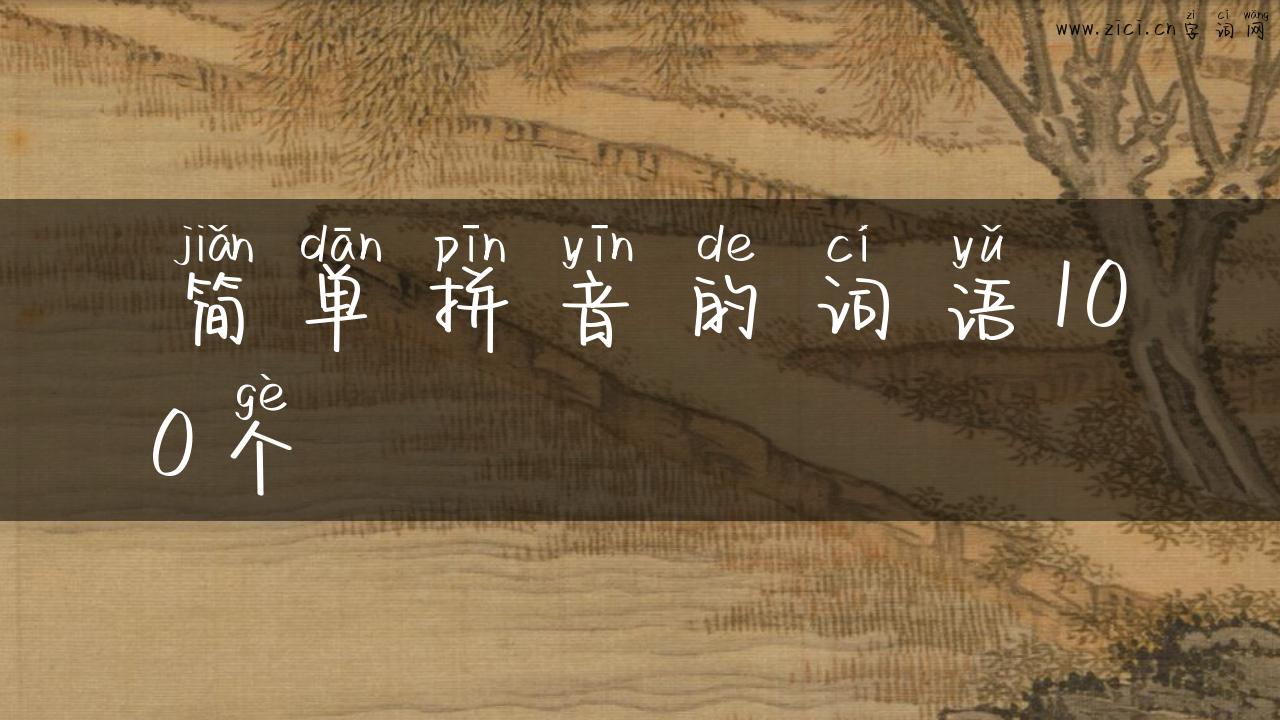 zì cí wǎng
www.zici.cn字词网
jiǎn dān pīn yīn de cí yǔ
简单拼音的词语10
gè
0个